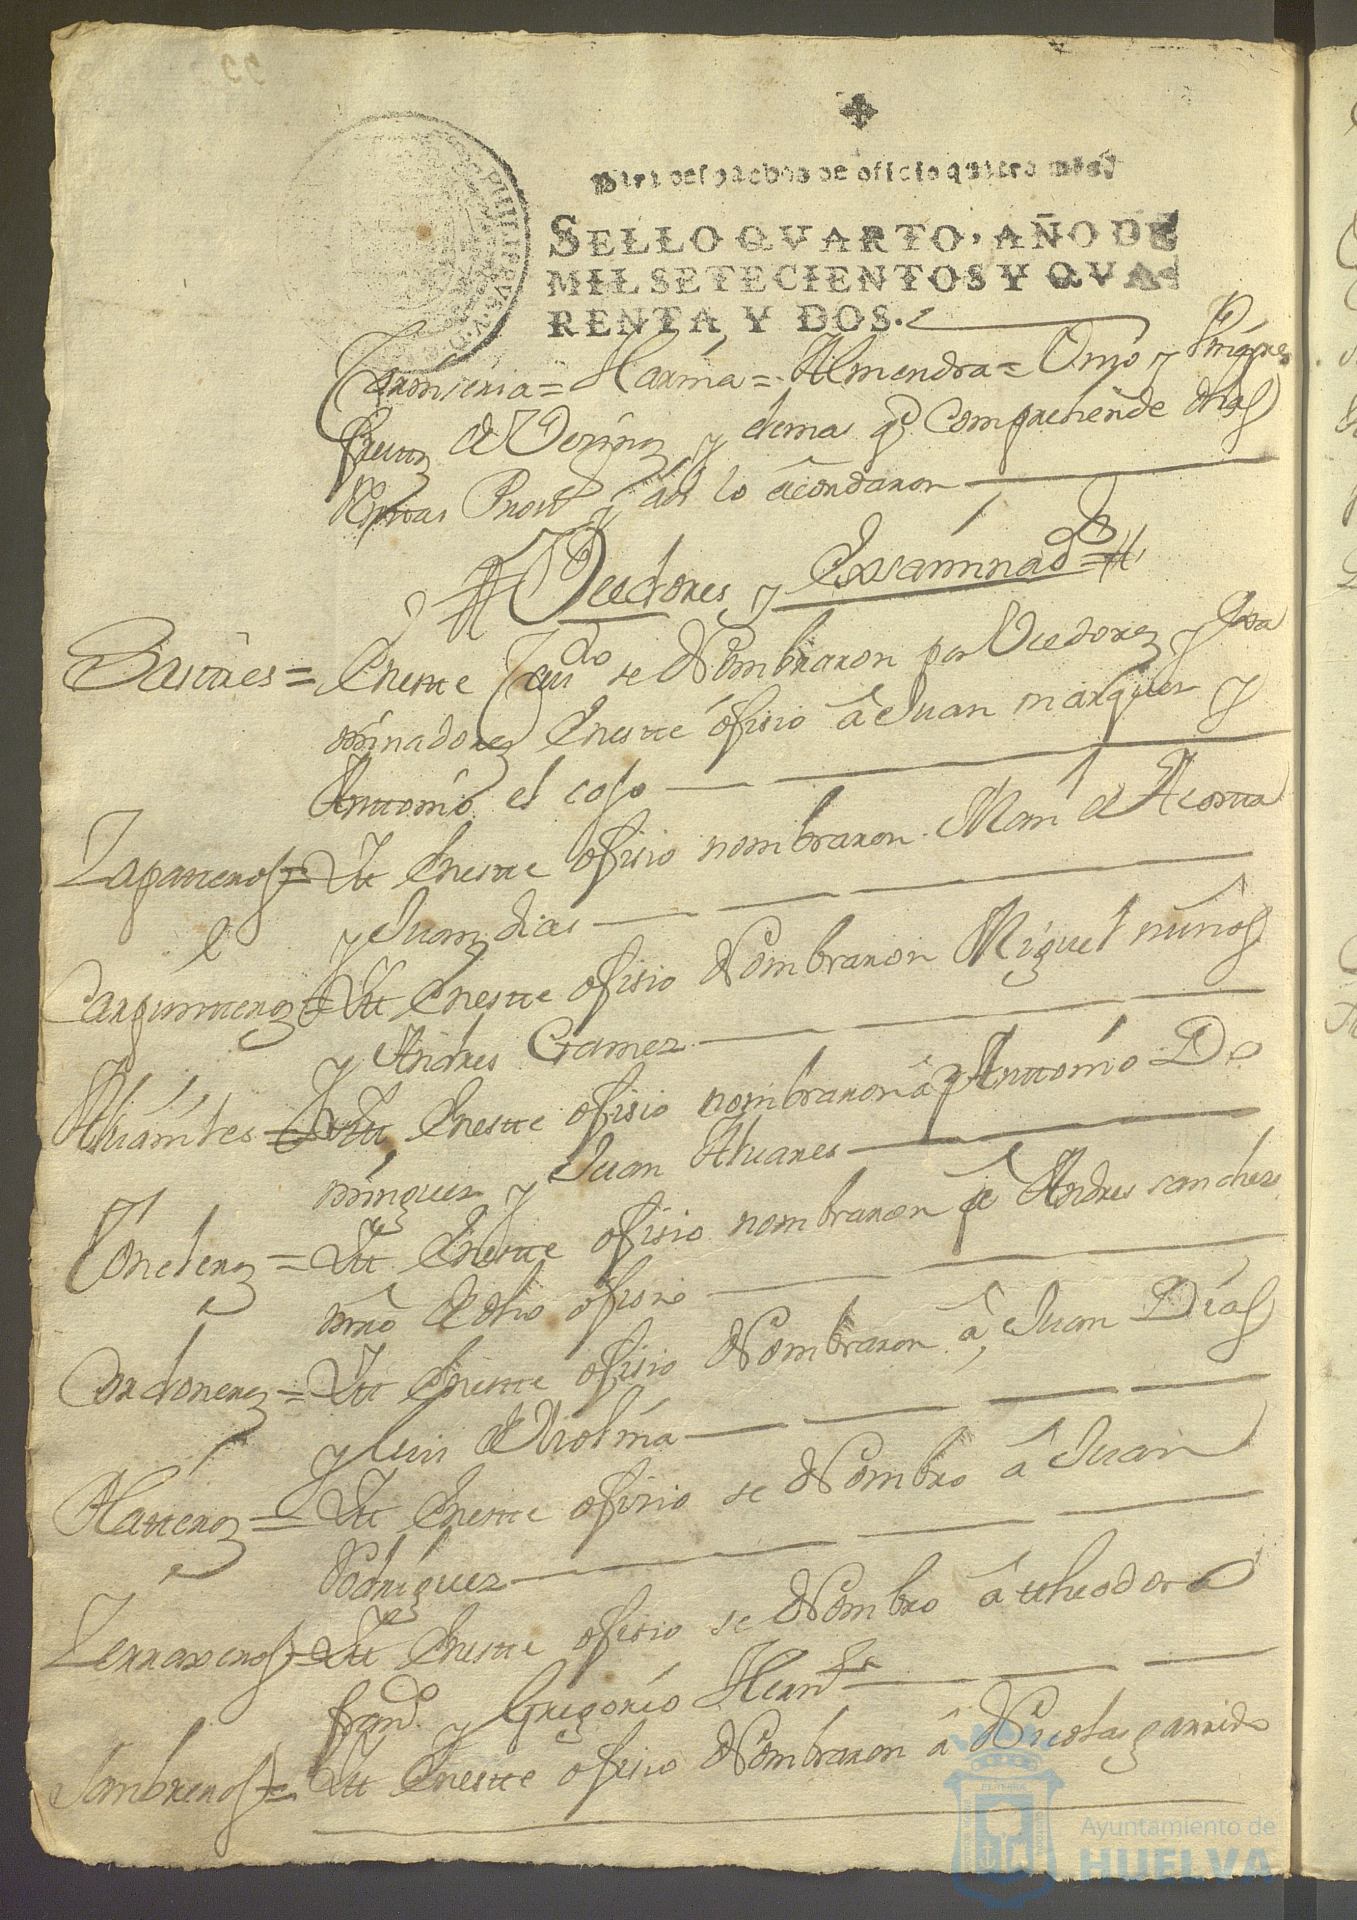 Para despachos de oficio quatro mrs.
SELLO QVARTO, AÑO DE
MIL SETECIENTOS Y QVA-
RENTA Y DOS.
Carniseria = Harina = Almendra = y
de y demas q̃ Comprehende dhas
Rentas y asi lo acordaron
Veedores y Exsaminad.s
Sastres = Enestte Cauj.do se Nombraron por Veedores y Exsa
minadores Enestte ofisio â Juan marques y
Anttonio el coso
Zapatteros = Itt Enestte ofisio nombraron Man.l de Acostta
y Juan dias
Carpintteros = Itt Enestte ofisio Nombraron Miguel nuños
y Andres Gamez
Aluañiles = Itt Enestte ofisio nombraron â Anttonio Do
minguez y Juan Aluares
Toneleros = Itt Enestte ofisio nombraron â Andres sanches
mrô de dho ofisio
Cordoneros = Itt Enestte ofisio Nombraron â Juan Dias
y Luis de Molina
Platteros = Itt Enestte ofisio se Nombro â Juan
Rodriguez
Zerraxeros = Itt Enestte ofisio se Nombro â ttheodoro
fran.co y Gregorio Hern.s
Sombreros = Itt Enestte ofisio Nombraron â Nicolas garrido
Ayuntamiento de
HUELVA